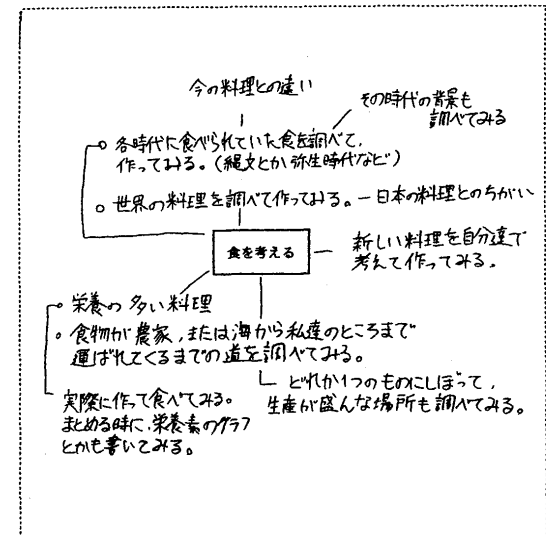 今の料理との違い
その時代の背景も
調べてみる
○ 各時代に食べられていた食を調べて、
作ってみる。(縄文とか弥生時代など)
○ 世界の料理を調べて作ってみる。ー日本の料理とのちがい
食を考える
新しい料理を自分達で
考えて作ってみる。
○ 栄養の多い料理
○ 食物が農家、または海から私達のところまで
運ばれてくるまでの道を調べてみる。
どれか1つのものにしぼって、
生産が盛んな場所も調べてみる。
実際に作って食べてみる。
まとめる時に、栄養素のグラフ
とかも書いてみる。